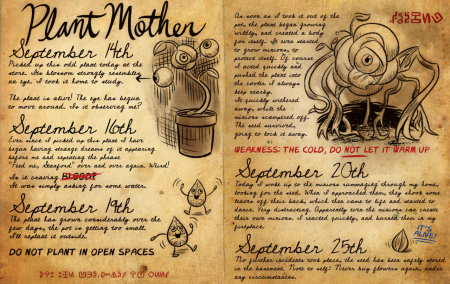 Plant Mother
September 14th
Picked up this odd plant today at the
store. Its blossom strongly resembles
an eye. I took it home to study.
The plant is alive! The eye has begun
to move around. Is it observing me?
September 16th
Ever since I picked up this plant I have
begun having strange dreams of it appearing
before me and repeating the phrase
"Feed me, Stanford" over and over again. Weird!
Is it craving BLOOD?
It was simply asking for some water.
September 19th
The plant has grown considerably over the
few days, the pot is getting too small.
I'll replant it outside.
DO NOT PLANT IN OPEN SPACES
As soon as I took it out of the
pot, the plant began growing
wildly, and created a body
for itself. It even started
to grow minions, to
protect itself. Of course
I acted quickly and
pushed the plant into
the cooler I always
keep nearby.
It quickly withered
away, while the
minions scampered off.
The seed survived,
going to lock it away.
WEAKNESS: THE COLD, DO NOT LET IT WARM UP
September 20th
Today I woke up to the minions rummaging through my home,
looking for the seed. When I approached them, they shook some
leaves off their back, which then came to life and started to
dance. Very distracting. Apparently even the minions can create
their own minions. I reacted quickly, and burned them in my
fireplace.
IT'S
ALIVE!
September 25th
No further incidents took place, the seed has been safely stored
in the basement. Note to self: Never buy flowers again, under
any circumstances.